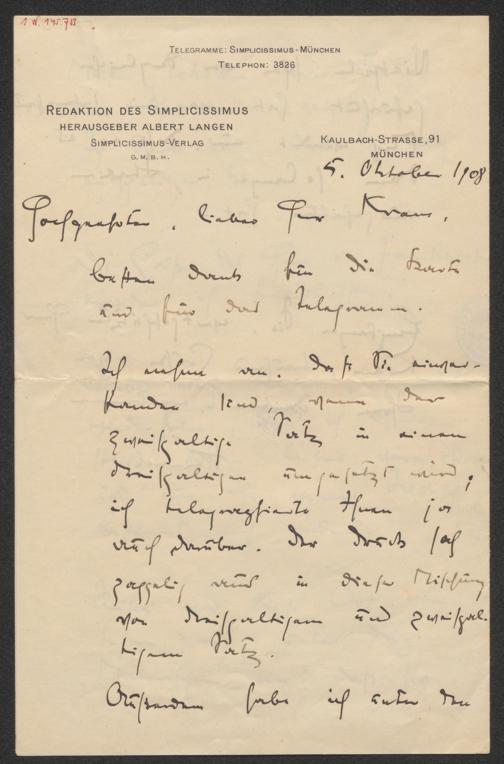 TELEGRAMME: SIMPLICISSIMUS-MÜNCHEN
TELEPHON: 3826
REDAKTION DES SIMPLICISSIMUS
HERAUSGEBER ALBERT LANGEN
SIMPLICISSIMUS-VERLAG
G. M. B. H.
KAULBACH-STRASSE, 91
MÜNCHEN
5. Oktober 1908
lieber Herr Kraus,
besten Dank für die Karte
und für das Telegramm.
Ich nehme an, daß Sie einver-
standen sind, wenn der
zweispaltige Satz in einen
dreispaltigen umgesetzt wird,
ich telegraphierte Ihnen ja
auch darüber. Der Druck sah
aus in dieser Mischung
von dreispaltigem und zweispal-
tigem Satz.
Außerdem habe ich unter den